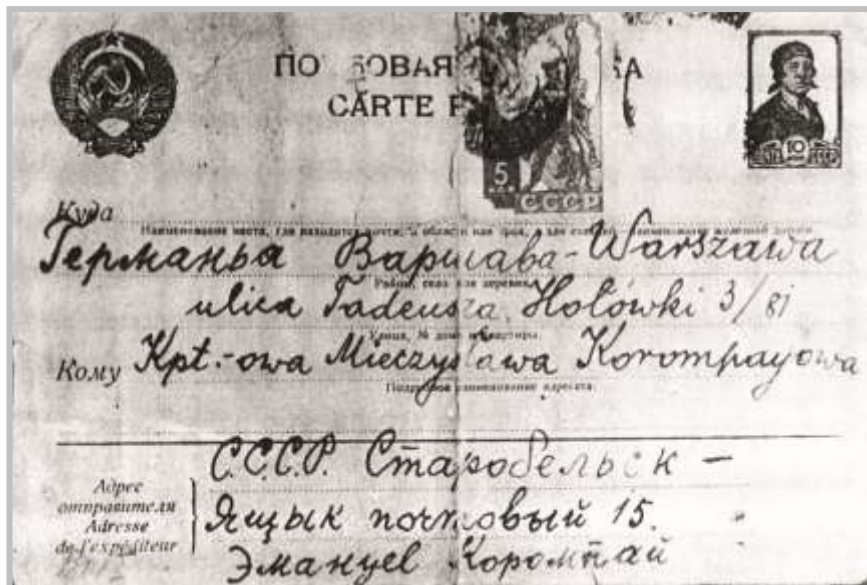 ПОЧТОВАЯ
CARTE
10
5
СССР
Куда
Наименование места, где находится почта, и области или края, а для станций наименование железной дороги
Германья Варшава - Warszawa
Район, село или деревня
ulica Tadeusza Hołówki 3/81
Улица, № дома и квартиры
Кому Kpt.-owa Mieczysława Korompayowa
Подробное наименование адресата
С.С.С.Р. Старобельск -
Адрес
отправителя
Adresse
de l'expéditeur
Ящык почтовый 15.
Эмануел Коромпай